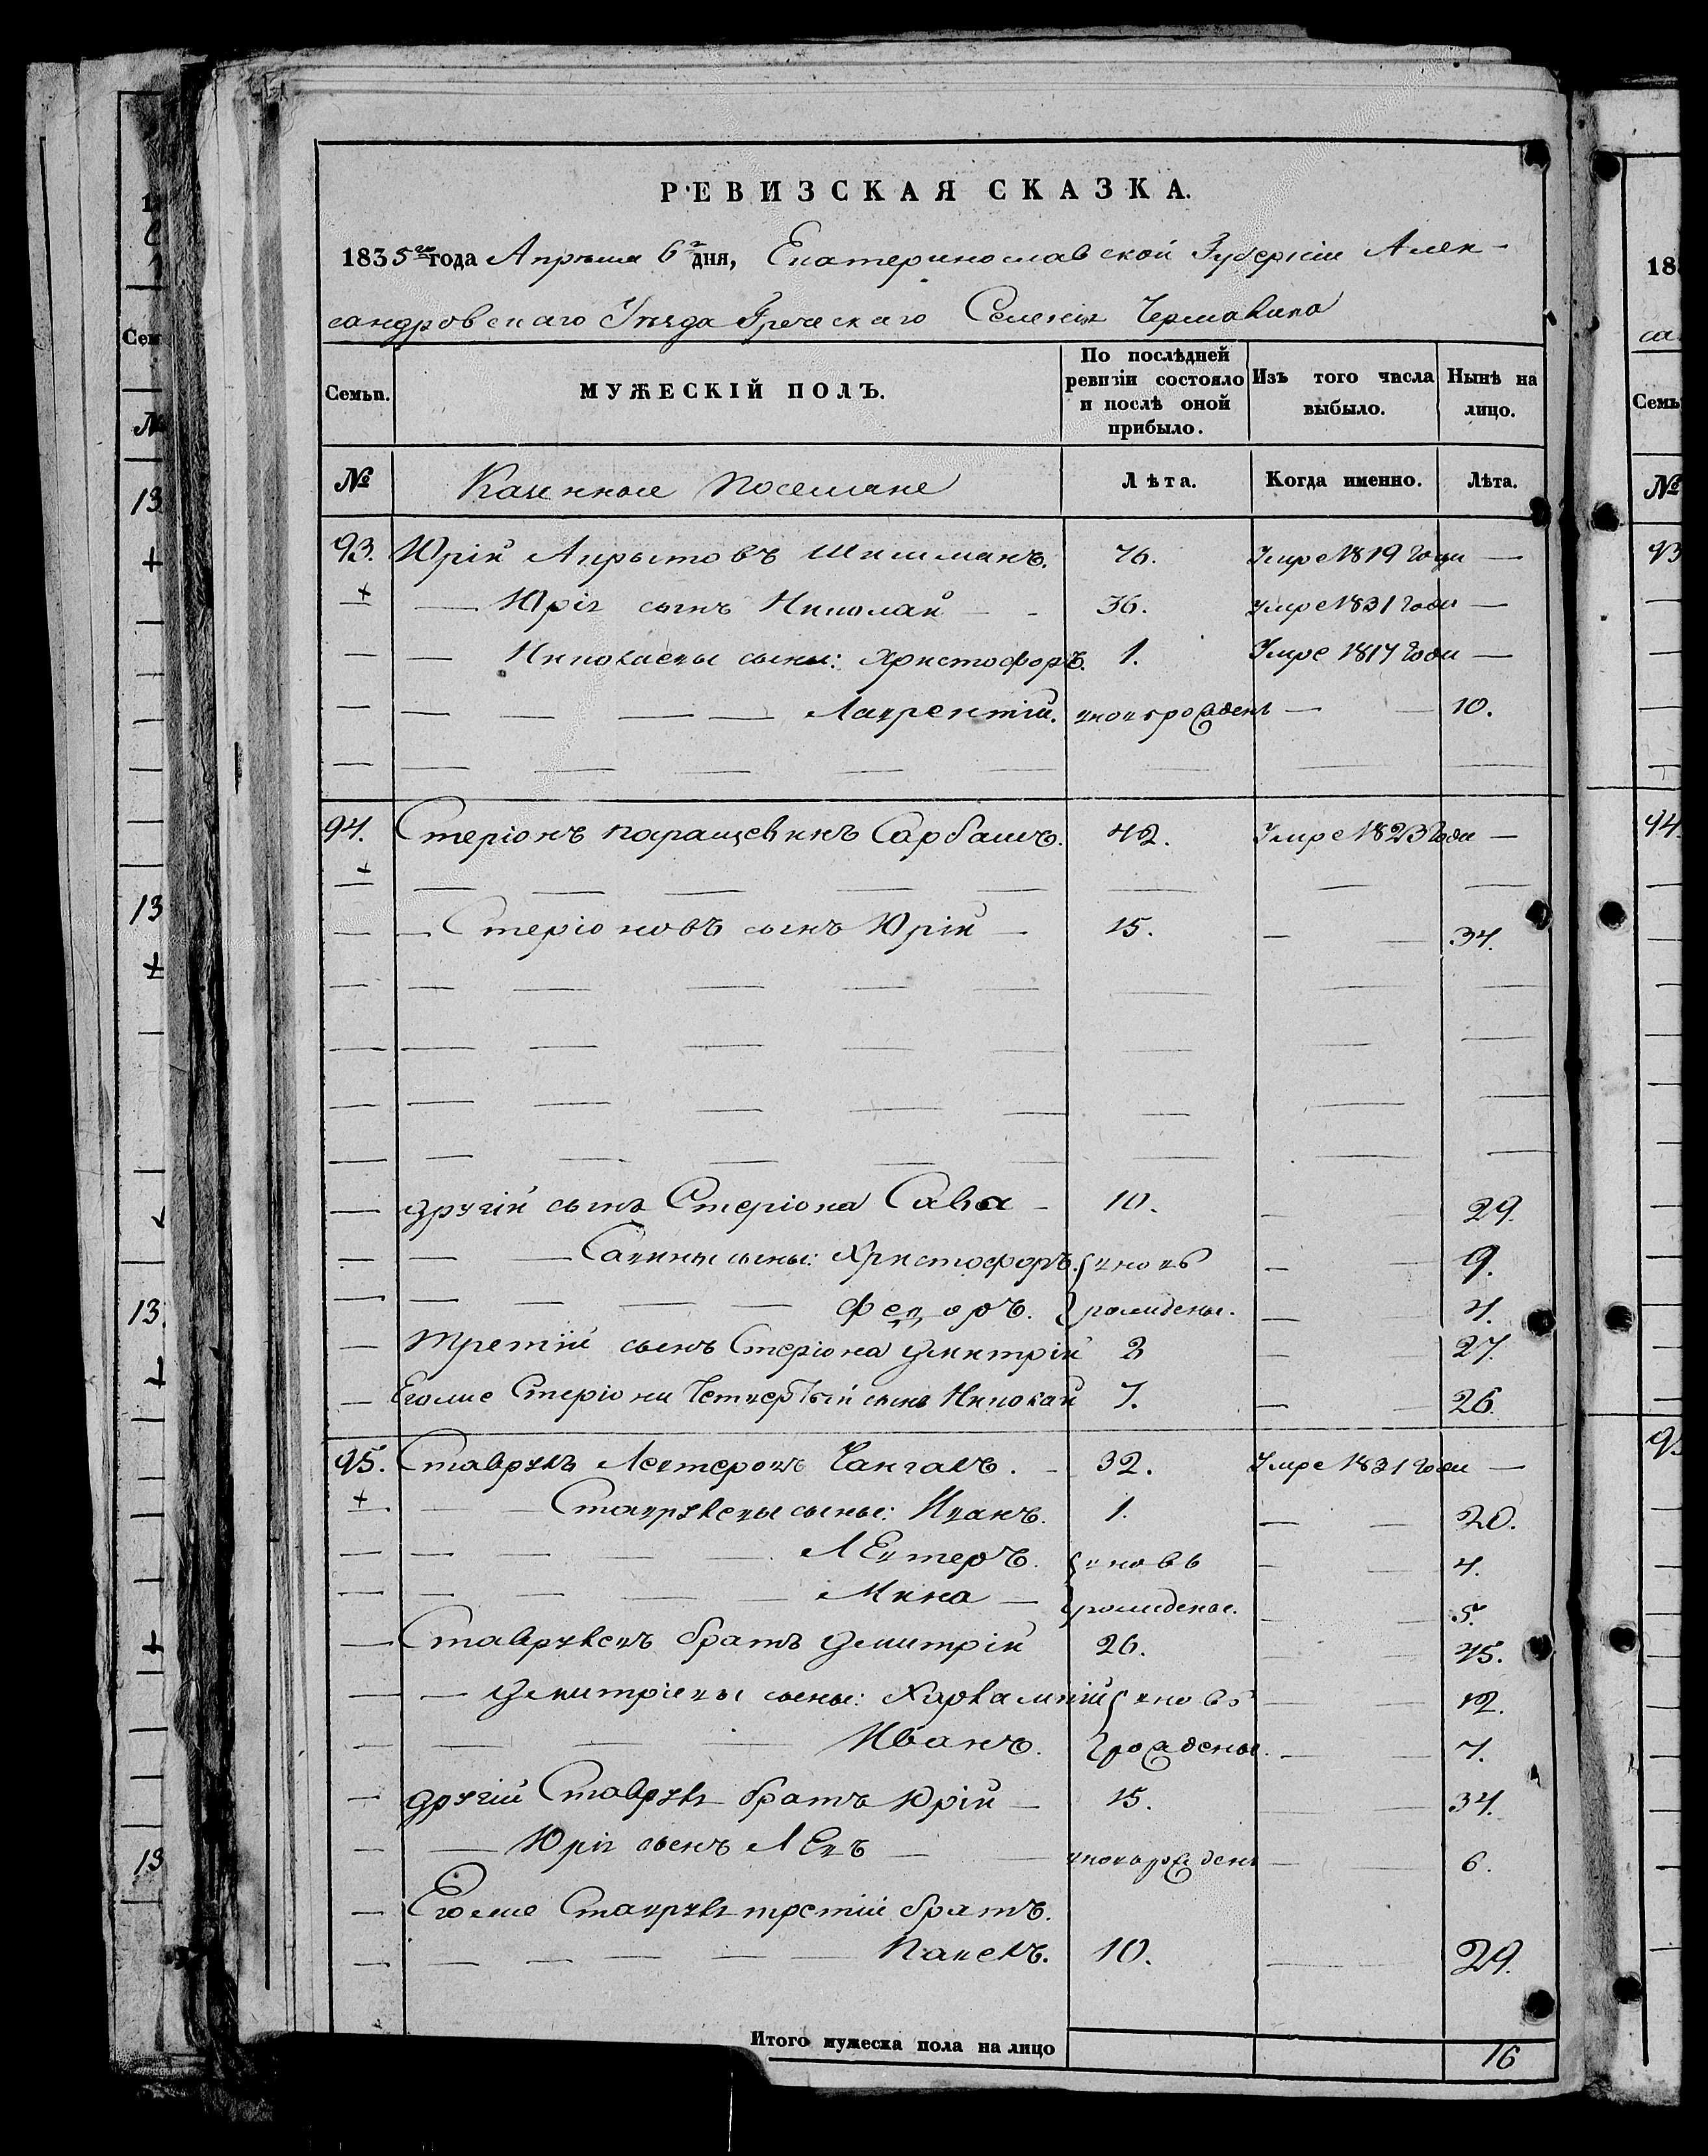 РЕВИЗСКАЯ СКАЗКА.
1835го года Апреля 6го дня, Екатеринославской Губерніи Алек-
сандровскаго Уезда Греческаго Селенія Чермалика
Семьи. МУЖЕСКІЙ ПОЛЪ. По послѣдней ревизіи состояло и послѣ оной прибыло. Изъ того числа выбыло. Нынѣ на лицо.
№ Казенные Поселяне Лѣта. Когда именно. Лѣта.
93. Юрій Апрытовъ Шишманъ. 76. Умре 1819 Года —
+ — Юрія сынъ Николай — - 36. умре 1831 Года —
— — Николаевы сыны: Христофоръ. 1. Умре 1817 Года —
— — — — — Лаврентій. вновърожденъ — — 10.
94. Стеріонъ Сарбашъ. 42. Умре 1823 Года —
+
— — Стеріоновъ сынъ Юрій — 15. — — 34.
— другій сынъ Стеріона Сава - 10. — — 29.
— — — Савины сыны: Христофоръ. вновь — — 9.
— — — — — Федоръ. рожденые. — — 4.
— Третій сынъ Стеріона Дмитрій 8 — — 27.
— Егоже Стеріона Четвертый сынъ Николай 7. — — 26.
95. Ставрукъ Левтеровъ Чангалъ. - 32. Умре 1831 Года —
+ — — Ставруковы сыны: Иванъ. 1. — — 20.
— — — — — Левтеръ. вновь — — 4.
— — — — — Мина — рожденые. — — 5.
— Ставруковъ братъ Дмитрій 26. — — 45.
— — Дмитріевы сыны: Харлампій вновь — — 12.
— — — — Иванъ. рожденые. — — 7.
— другій Ставрука братъ Юрій — 15. — — 34.
— — Юрія сынъ Левъ — — вноворожденъ — — 6.
— Егоже Ставрука третій братъ.
— — — — — — Павелъ. 10. — — 29.
Итого мужеска пола на лицо 16